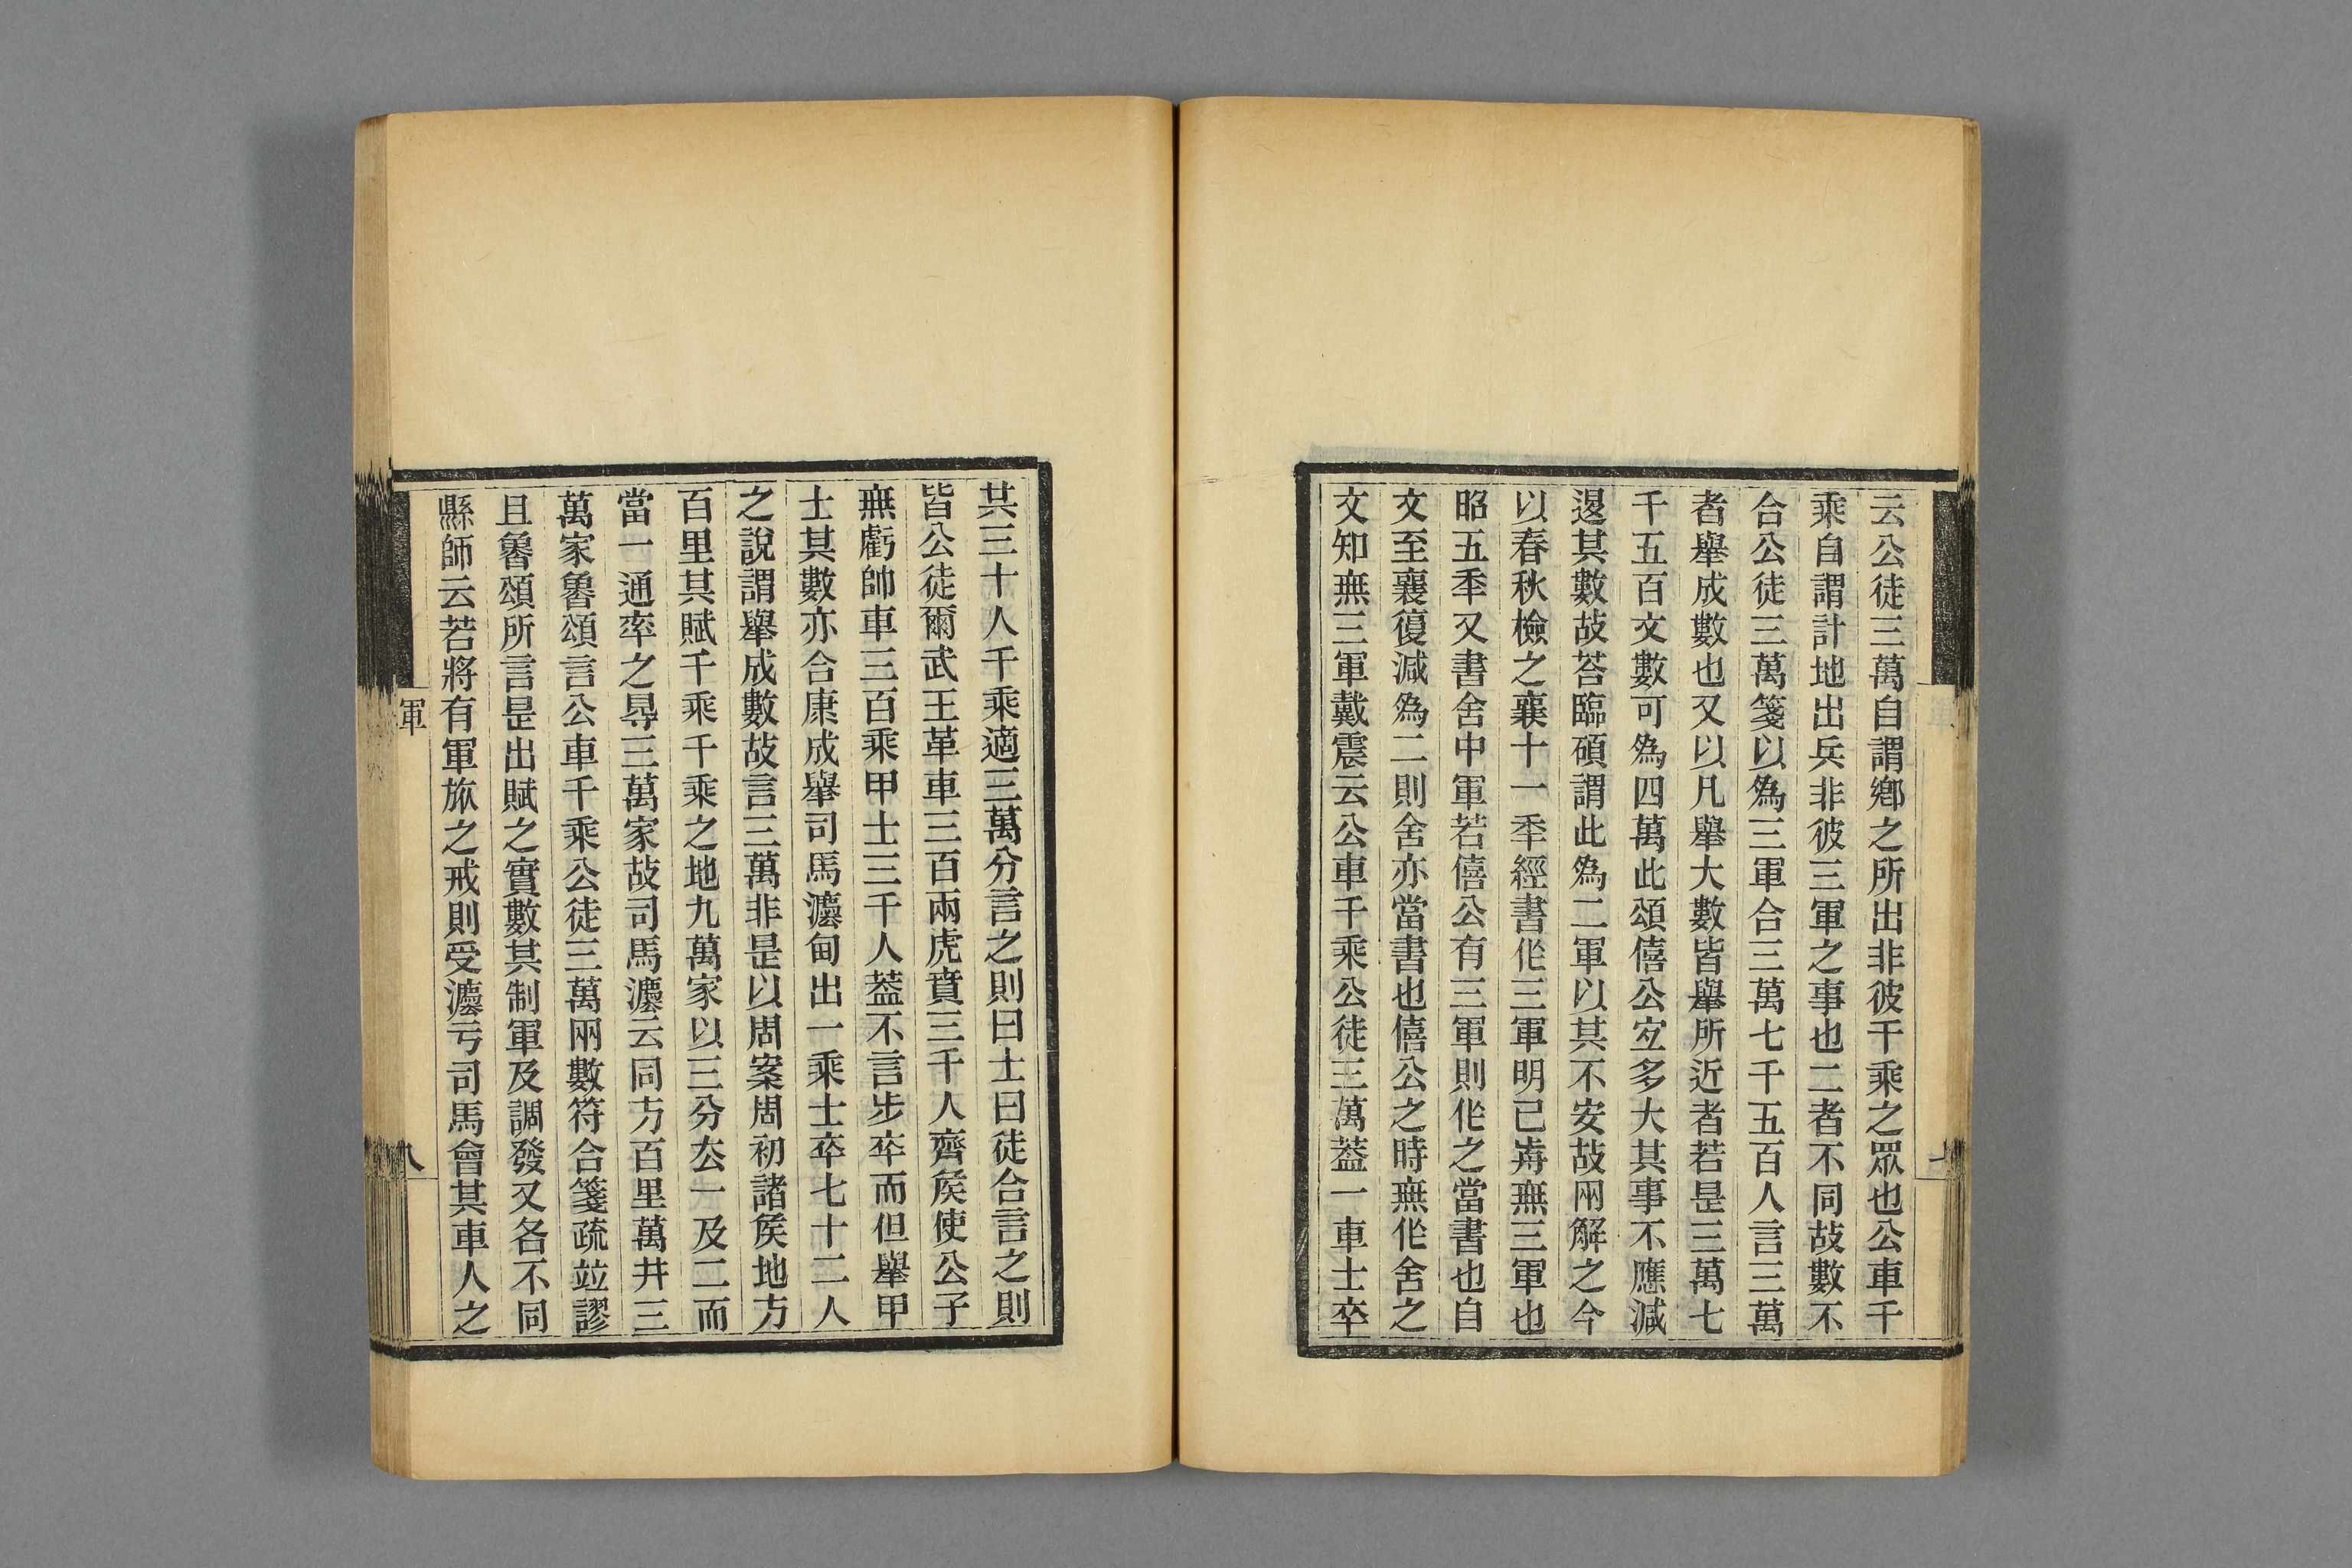 云公徒三萬自謂鄉之所出非彼千乘之眾也公車千
乘自謂計地出兵非彼三軍之事也二者不同故數不
合公徒三萬箋以為三軍合三萬七千五百人言三萬
者舉成數也又以凡舉大數皆舉所近者若是三萬七
千五百文數可為四萬此頌僖公宐多大其事不應減
𨓤其數故荅臨碩謂此為二軍以其不安故兩解之今
以春秋檢之襄十一秊經書作三軍明已歬無三軍也
昭五秊又書舍中軍若僖公有三軍則作之當書也自
文至襄復減為二則舍亦當書也僖公之時無作舍之
文知無三軍戴震云公車千乘公徒三萬葢一車士卒
共三十人千乘適三萬分言之則曰士曰徒合言之則
皆公徒爾武王革車三百兩虎賁三千人齊矦使公子
無虧帥車三百乘甲士三千人葢不言步卒而但舉甲
士其數亦合康成舉司馬灋甸出一乘士卒七十二人
之說謂舉成數故言三萬非是以周案周初諸矦地方
百里其賦千乘千乘之地九萬家以三分厺一及二而
當一通率之㝵三萬家故司馬灋云同方百里萬井三
萬家魯頌言公車千乘公徒三萬兩數符合箋疏竝謬
且魯頌所言是出賦之實數其制軍及調發又各不同
縣師云若將有軍旅之戒則受灋亏司馬會其車人之
軍
八